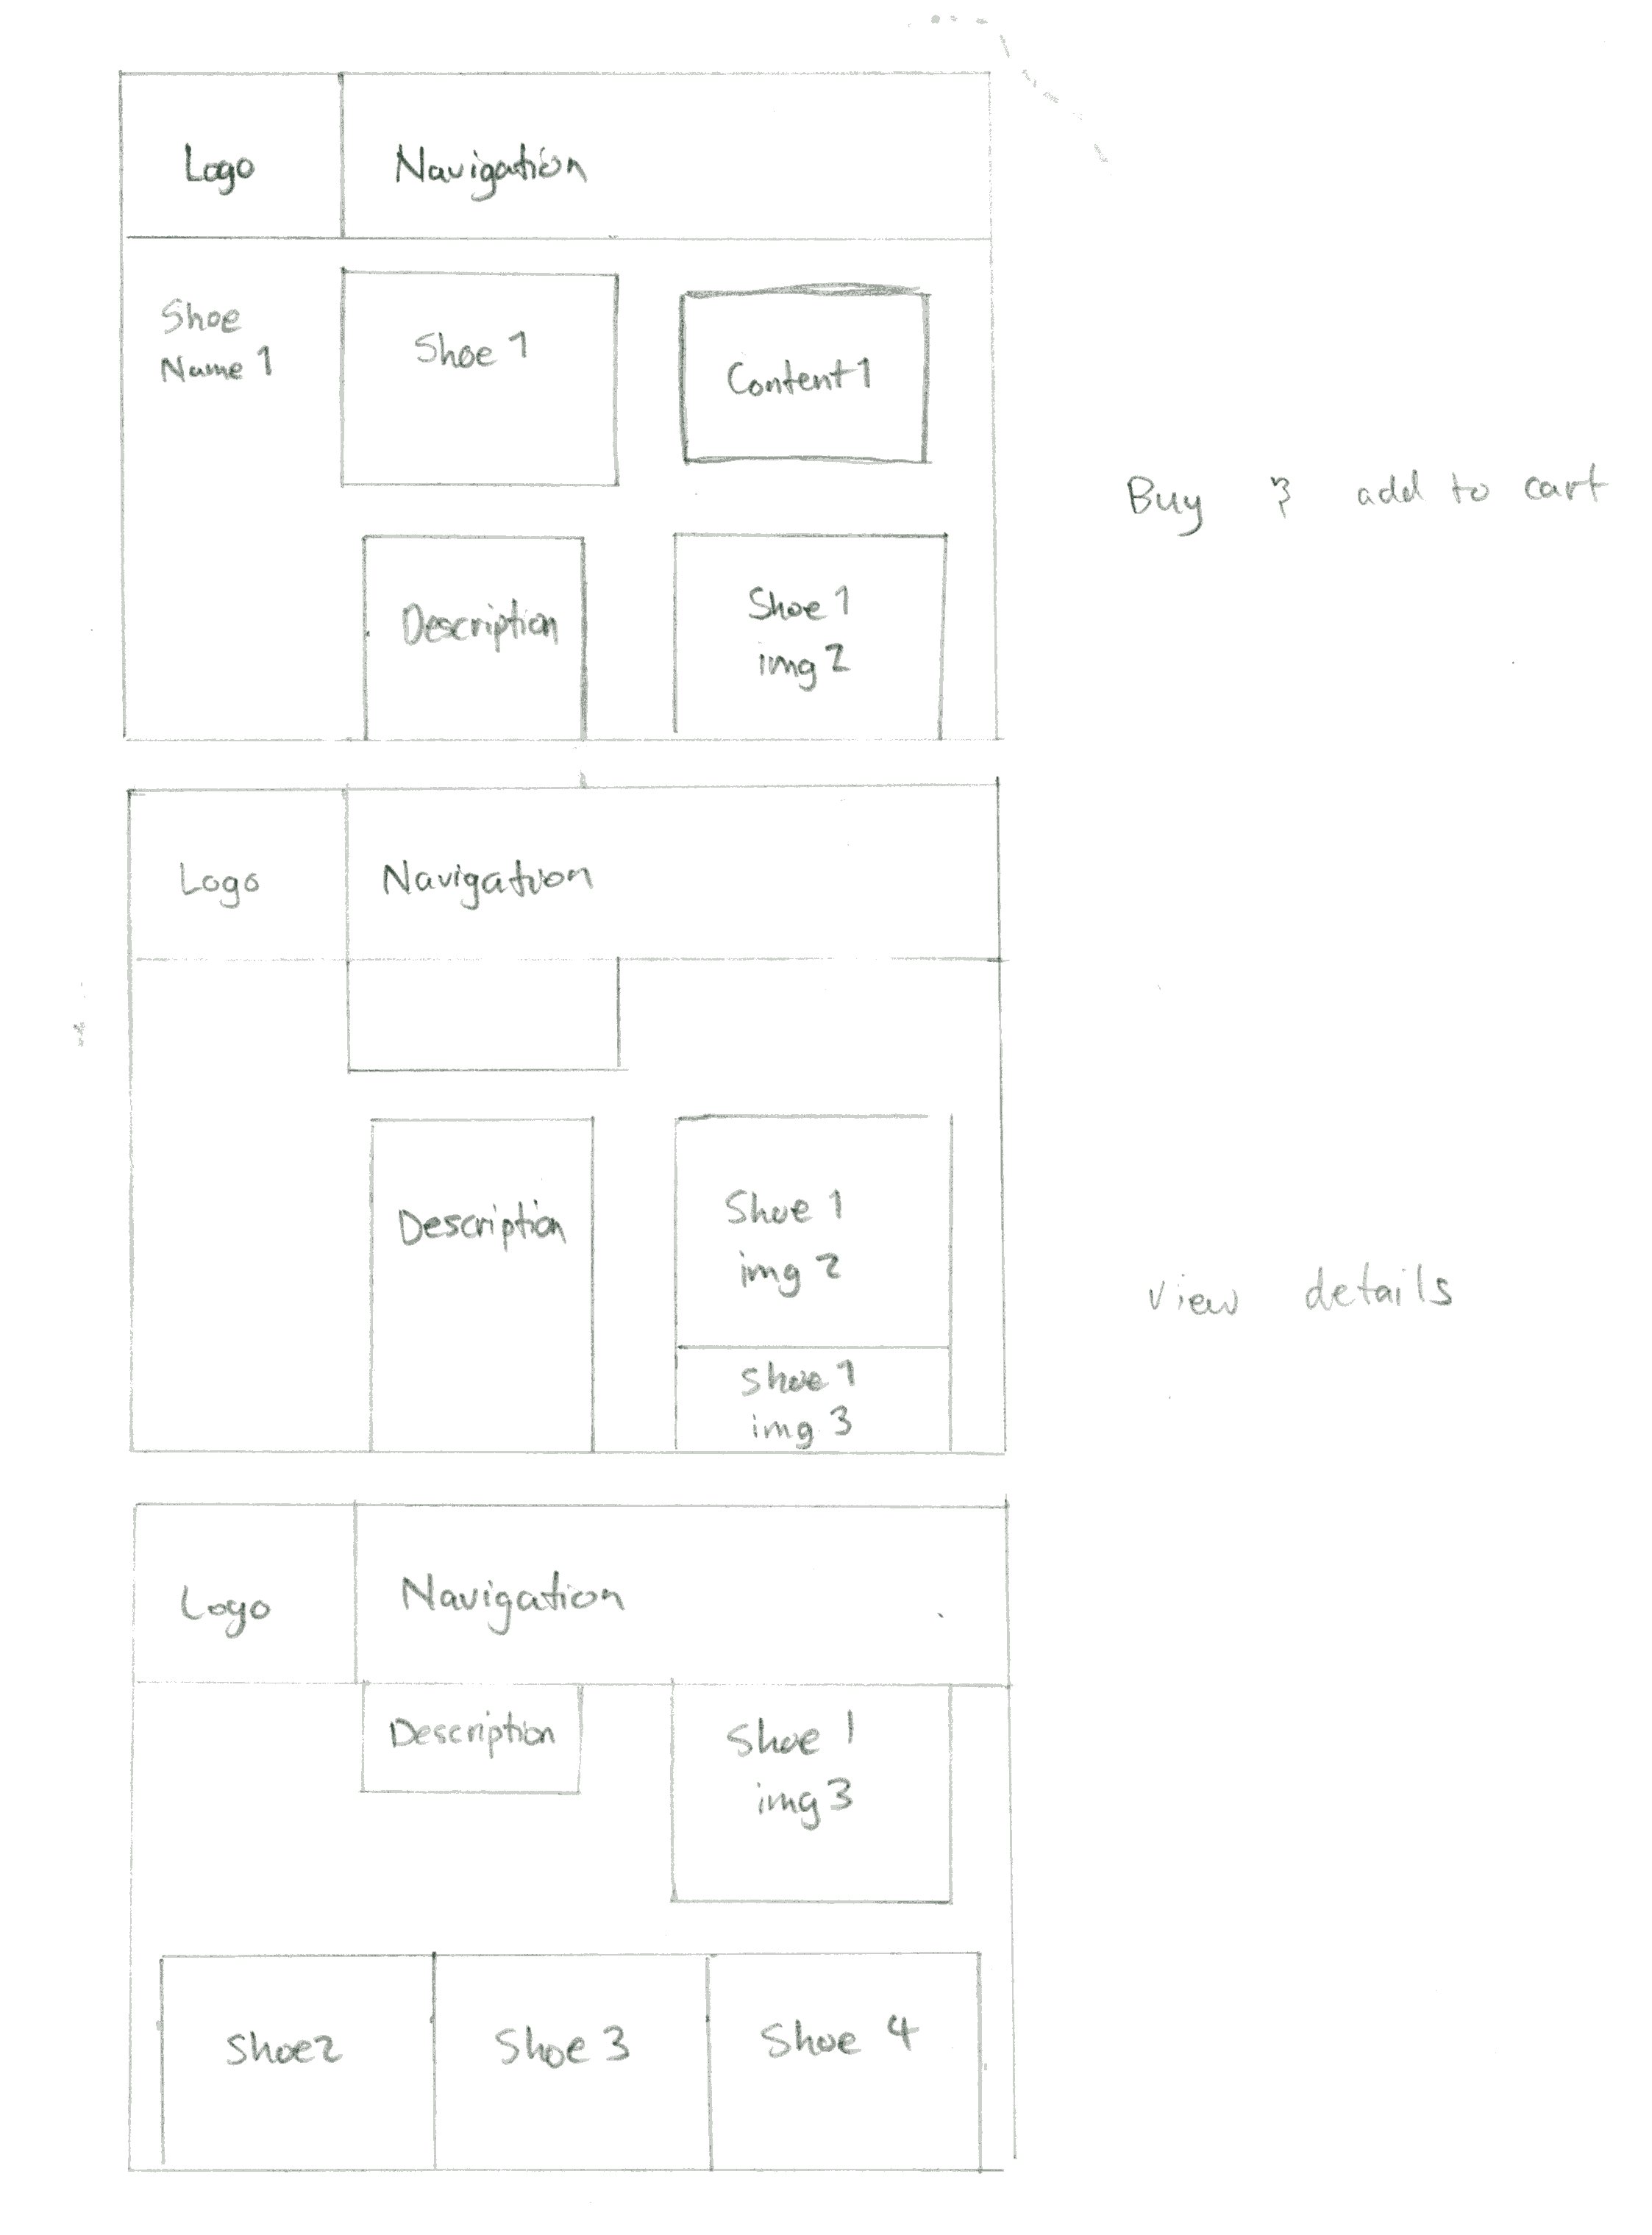 Logo
Navigation
Shoe
Name 1
Shoe 1
Content 1
Buy & add to cart
Description
Shoe 1
img 2
Logo
Navigation
Description
Shoe 1
img 2
Shoe 1
img 3
view details
Logo
Navigation
Description
Shoe 1
img 3
Shoe 2
Shoe 3
Shoe 4